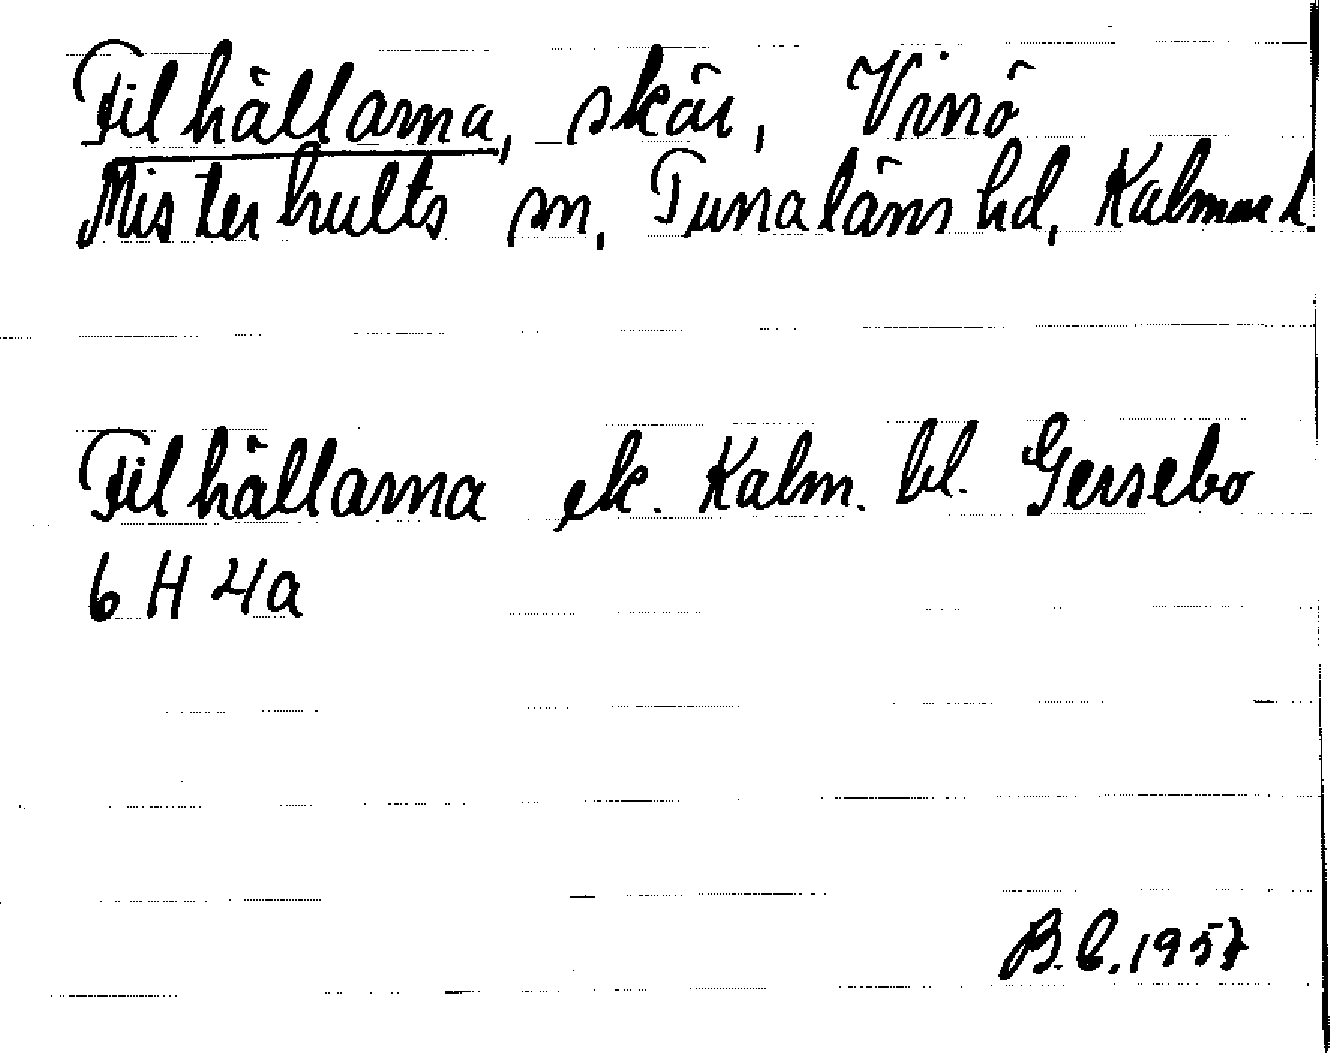 Filhällarna, skär, Vinö
Misterhults sn, Tunaläns hd, Kalmar l.
Filhällarna ek. Kalm. bl. Gersebo
6 H 4a
B.C. 1957